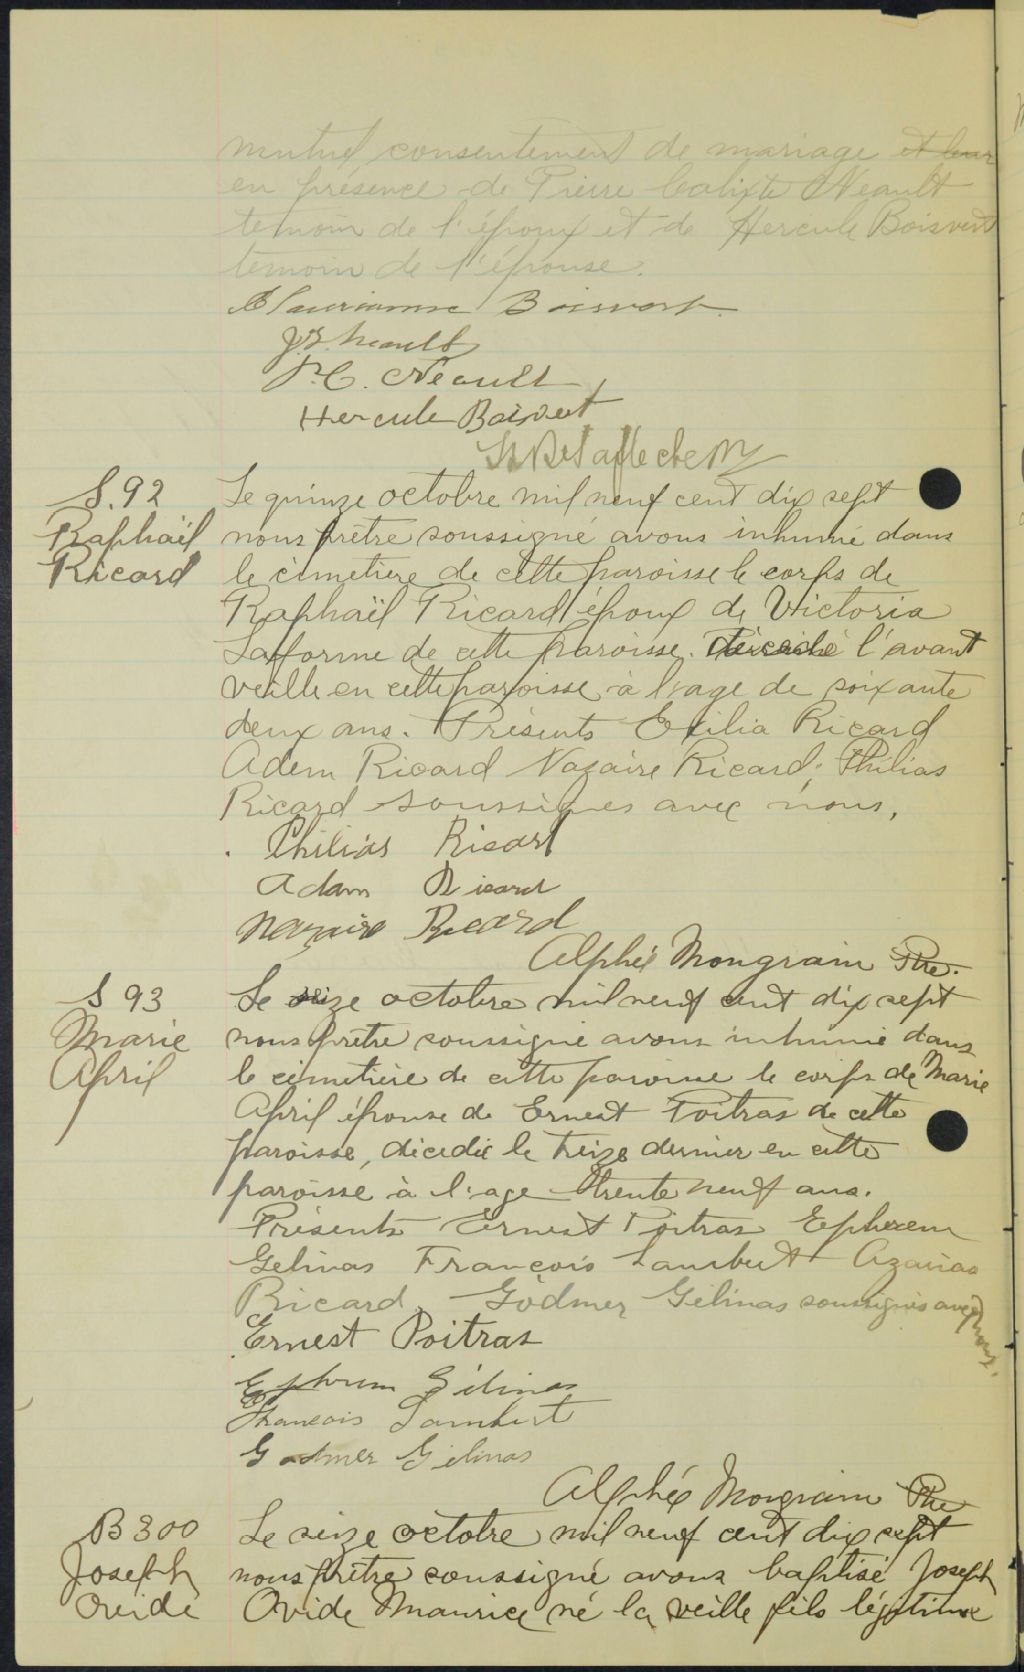 mutuel consentement de mariage et leur
en présence de Pierre Calixte Neault
temoin de l'époux et de Hercule Boisvert
temoin de l'épouse.
Boisvert
J. Neault
P. C. Neault
Hercule Boisvert
Laflèche
S. 92
Raphaël
Ricard
Le quinze octobre mil neuf cent dix sept
nous prêtre soussigné avons inhumé dans
le cimetière de cette paroisse le corps de
Raphaël Ricard époux de Victoria
Lafforme de cette paroisse. décédé l'avant
veille en cette paroisse à l'age de soixante
deux ans. Présents Ricard
Adem Ricard Nazaire Ricard, Philias
Ricard soussignes avec nous,
Philias Ricard
Adam Ricard
Nazaire Ricard
Alphée Mongrain Ptre.
S 93
Marie
April
Le seize octobre mil neuf cent dix sept
nous prêtre soussigné avons inhumé dans
le cimetière de cette paroisse le corps de Marie
April épouse de Ernest Poitras de cette
paroisse, décedée le treize dernier en cette
paroisse à l'age trente neuf ans.
Présents Ernest Poitras Ephrem
Gelinas François Lambert Azarias
Ricard, Godmer Gélinas soussignés avec nous.
Ernest Poitras
Ephrem Gélinas
Francois Lambert
Godmer Gélinas
Alphée Mongrain Ptre
B 300
Joseph
Ovide
Le seize octobre mil neuf cent dix sept
nous prêtre soussigné avons baptisé Joseph
Ovide Maurice né la veille fils légitime